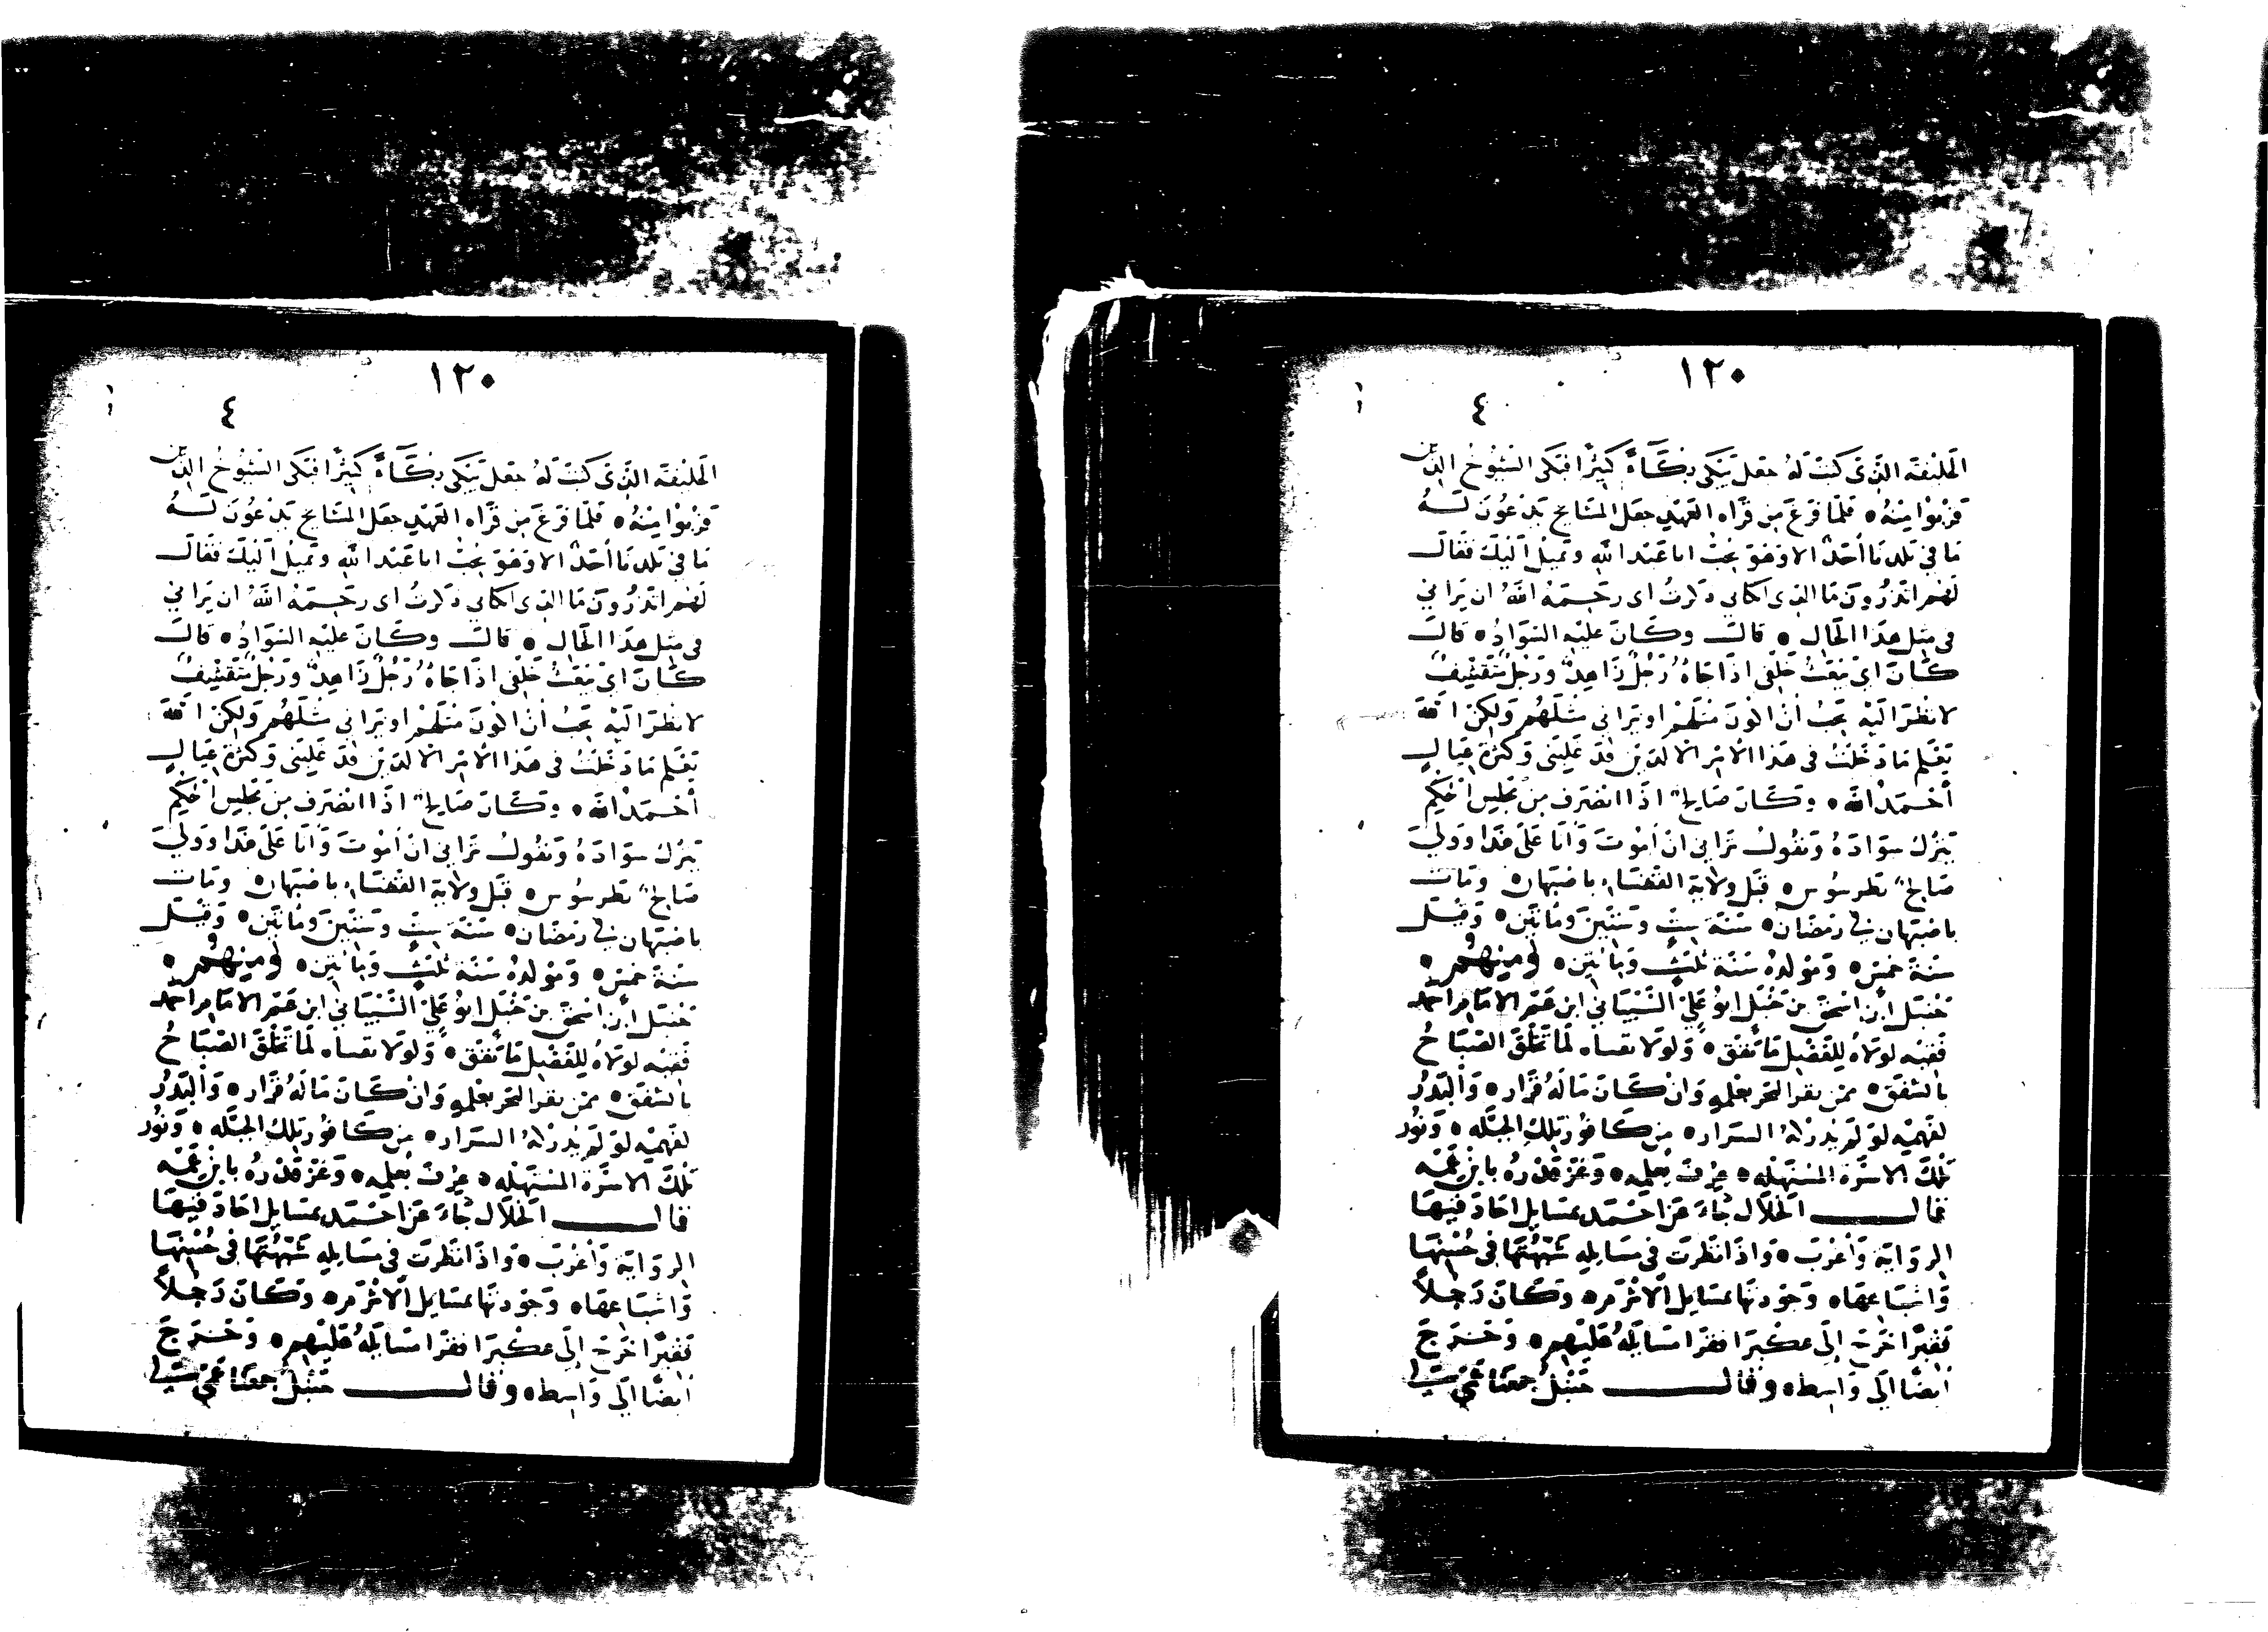 ١٢٠
٤
الخليفة الذي كتب له جعل يبكي بكآءً كثيرًا فبكى الشيوخ الذين
قربوا منه ۰ فلما فرغ من قراه العهد جعل المشايخ يدعون له
ما في بلدنا أحدٌ الا وهو يحبّ ابا عبد الله ويميل اليك فقال
لهم اتدرون ما الذي ابكاني ذكرتُ ابي رحمه اللهُ ان يراني
في مثل هذا الحال ۰ قال وكان عليه السواد ۰ قال
كان ابي يبعث خلفي اذا جاه رجلٌ زاهدٌ ورجلٌ متقشفٌ
لانظر اليه يحبُ أن اكون مثلهم او يراني مثلهم ولكن الله
يعلم ما دخلتُ في هذا الامر الا لدين قد غلبني وكثرة عيال
أحمد الله ۰ وكان صالحٌ اذا انصرف من مجلس الحكم
يترك سواده ويقول تراني ان أموت وأنا على هذا وولي
صالحٌ بطرسوس ۰ قبل ولاية القضاء باصبهان ۰ ومات
باصبهان في رمضان ۰ سنة ست وستين ومائتين ۰ وقيل
سنة خمس ۰ ومولده سنة ثلثٍ ومائتين ۰ ومنهم ۰
حنبل ابن اسحق بن حنبل ابو علي الشيباني ابن عم الامام احمد
فقيه لولاه للفضل ما تفق ۰ ولولا نفساه لما تخلق الصباحُ
بالشفق ۰ ممن يقر البحر بعلمه وان كان ماله قرار ۰ والبدرُ
لفهمه لو لم يدركهُ السرار ۰ من كافور تلك الجبله ۰ ونور
تلك الاسرة المستهله ۰ عرف بعلمه ۰ وعز قدره بابن عمه
قال الخلال جاءَ عن احمد بمسايل اجاد فيها
الرواية وأغرب ۰ واذا نظرت في مسايله شبهتها في حسنها
واشباعها ۰ وجودتها بمسايل الاثرم ۰ وكان رجلاً
فقيرًا خرج إلى عكبرا فقرا مسايلهُ عليهم ۰ وخرج
ايضا الى واسط ۰ وقال حنبل جمعنا عمي
١٢٠
٤
الخليفة الذي كتب له جعل يبكي بكآءً كثيرًا فبكى الشيوخ الذين
قربوا منه ۰ فلما فرغ من قراه العهد جعل المشايخ يدعون له
ما في بلدنا أحدٌ الا وهو يحبّ ابا عبد الله ويميل اليك فقال
لهم اتدرون ما الذي ابكاني ذكرتُ ابي رحمه اللهُ ان يراني
في مثل هذا الحال ۰ قال وكان عليه السواد ۰ قال
كان ابي يبعث خلفي اذا جاه رجلٌ زاهدٌ ورجلٌ متقشفٌ
لانظر اليه يحبُ أن اكون مثلهم او يراني مثلهم ولكن الله
يعلم ما دخلتُ في هذا الامر الا لدين قد غلبني وكثرة عيال
أحمد الله ۰ وكان صالحٌ اذا انصرف من مجلس الحكم
يترك سواده ويقول تراني ان أموت وأنا على هذا وولي
صالحٌ بطرسوس ۰ قبل ولاية القضاء باصبهان ۰ ومات
باصبهان في رمضان ۰ سنة ست وستين ومائتين ۰ وقيل
سنة خمس ۰ ومولده سنة ثلثٍ ومائتين ۰ ومنهم ۰
حنبل ابن اسحق بن حنبل ابو علي الشيباني ابن عم الامام احمد
فقيه لولاه للفضل ما تفق ۰ ولولا نفساه لما تخلق الصباحُ
بالشفق ۰ ممن يقر البحر بعلمه وان كان ماله قرار ۰ والبدرُ
لفهمه لو لم يدركهُ السرار ۰ من كافور تلك الجبله ۰ ونور
تلك الاسرة المستهله ۰ عرف بعلمه ۰ وعز قدره بابن عمه
قال الخلال جاءَ عن احمد بمسايل اجاد فيها
الرواية وأغرب ۰ واذا نظرت في مسايله شبهتها في حسنها
واشباعها ۰ وجودتها بمسايل الاثرم ۰ وكان رجلاً
فقيرًا خرج إلى عكبرا فقرا مسايلهُ عليهم ۰ وخرج
ايضا الى واسط ۰ وقال حنبل جمعنا عمي